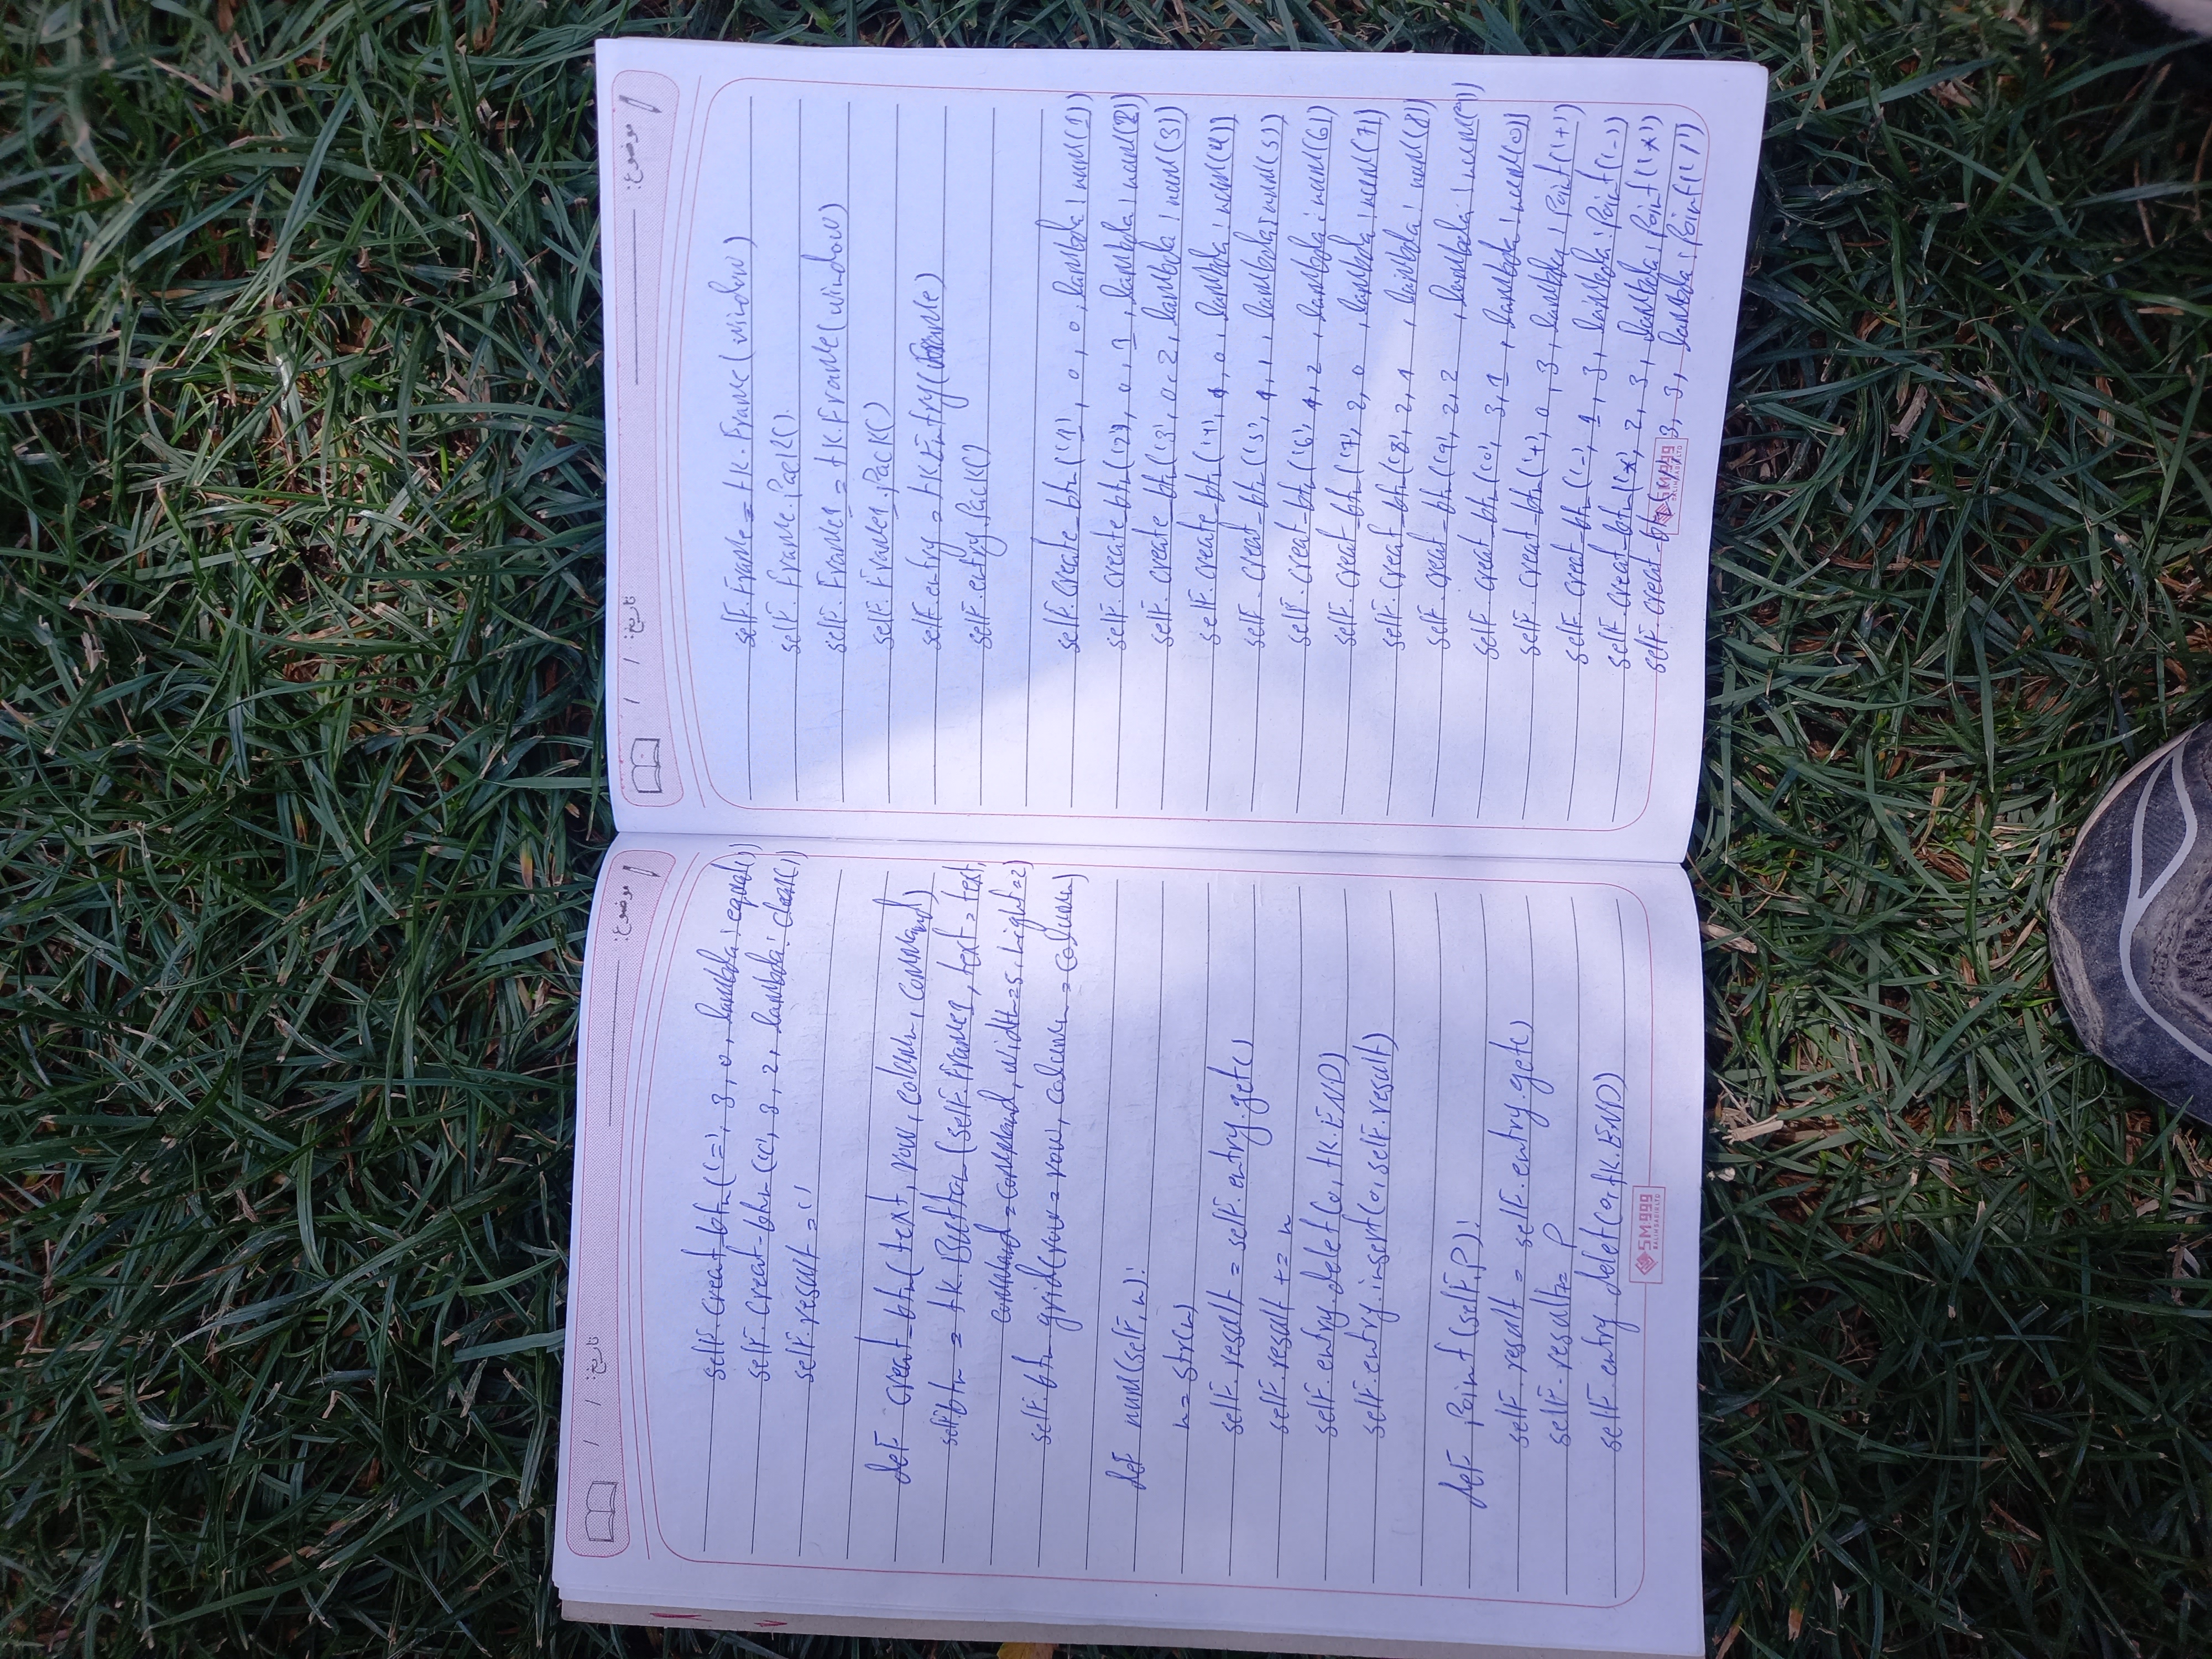 موضوع: تاريخ: / /
self.Frame = tk.Frame(window)
self.Frame.Pack().
self.Frame1 = tk.Frame(window)
self.Frame1.Pack()
self.entry = tk.Entry(Frame)
self.entry.Pack()
self.create_btn('1', 0, 0, lambda: num(1))
self.create_btn('2'), 0, 1, lambda: num(2))
self.create_btn('3', 0, 2, lambda: num(3))
self.create_btn('4', 1, 0, lambda: num(4))
self.creat_btn('5', 1, 1, lambda: num(5))
self.creat_btn('6', 1, 2, lambda: num(6))
self.creat_btn('7', 2, 0, lambda: num(7))
self.creat_btn('8', 2, 1, lambda: num(8))
self.creat_btn('9', 2, 2, lambda: num(9))
self.creat_btn('0', 3, 1, lambda: num(0))
self.creat_btn('+', 0, 3, lambda: Point('+'))
self.creat_btn('-', 1, 3, lambda: Point('-'))
self.creat_btn('*', 2, 3, lambda: Point('*'))
self.creat_btn('/', 3, 3, lambda: Point('/')
SM999
SALIM SADIR LTD
موضوع: تاريخ: / /
self.creat_btn('=', 3, 0, lambda: equal())
self.creat_btn('c', 3, 2, lambda: clear())
self.result = ''
def creat_btn(text, row, column, command)
self.btn = tk.Button(self.Frame1, text = text,
command = command, width=5, hight=2)
self.btn grid(row = row, column = column)
def num(self, n):
n = str(n)
self.result = self.entry.get()
self.result += n
self.entry.delet(0, tk.END)
self.entry.insert(0, self.result)
def Point(self, P):
self.result = self.entry.get()
self.result += P
self.entry delet(0, tk.END)
SM999
SALIM SADIR LTD